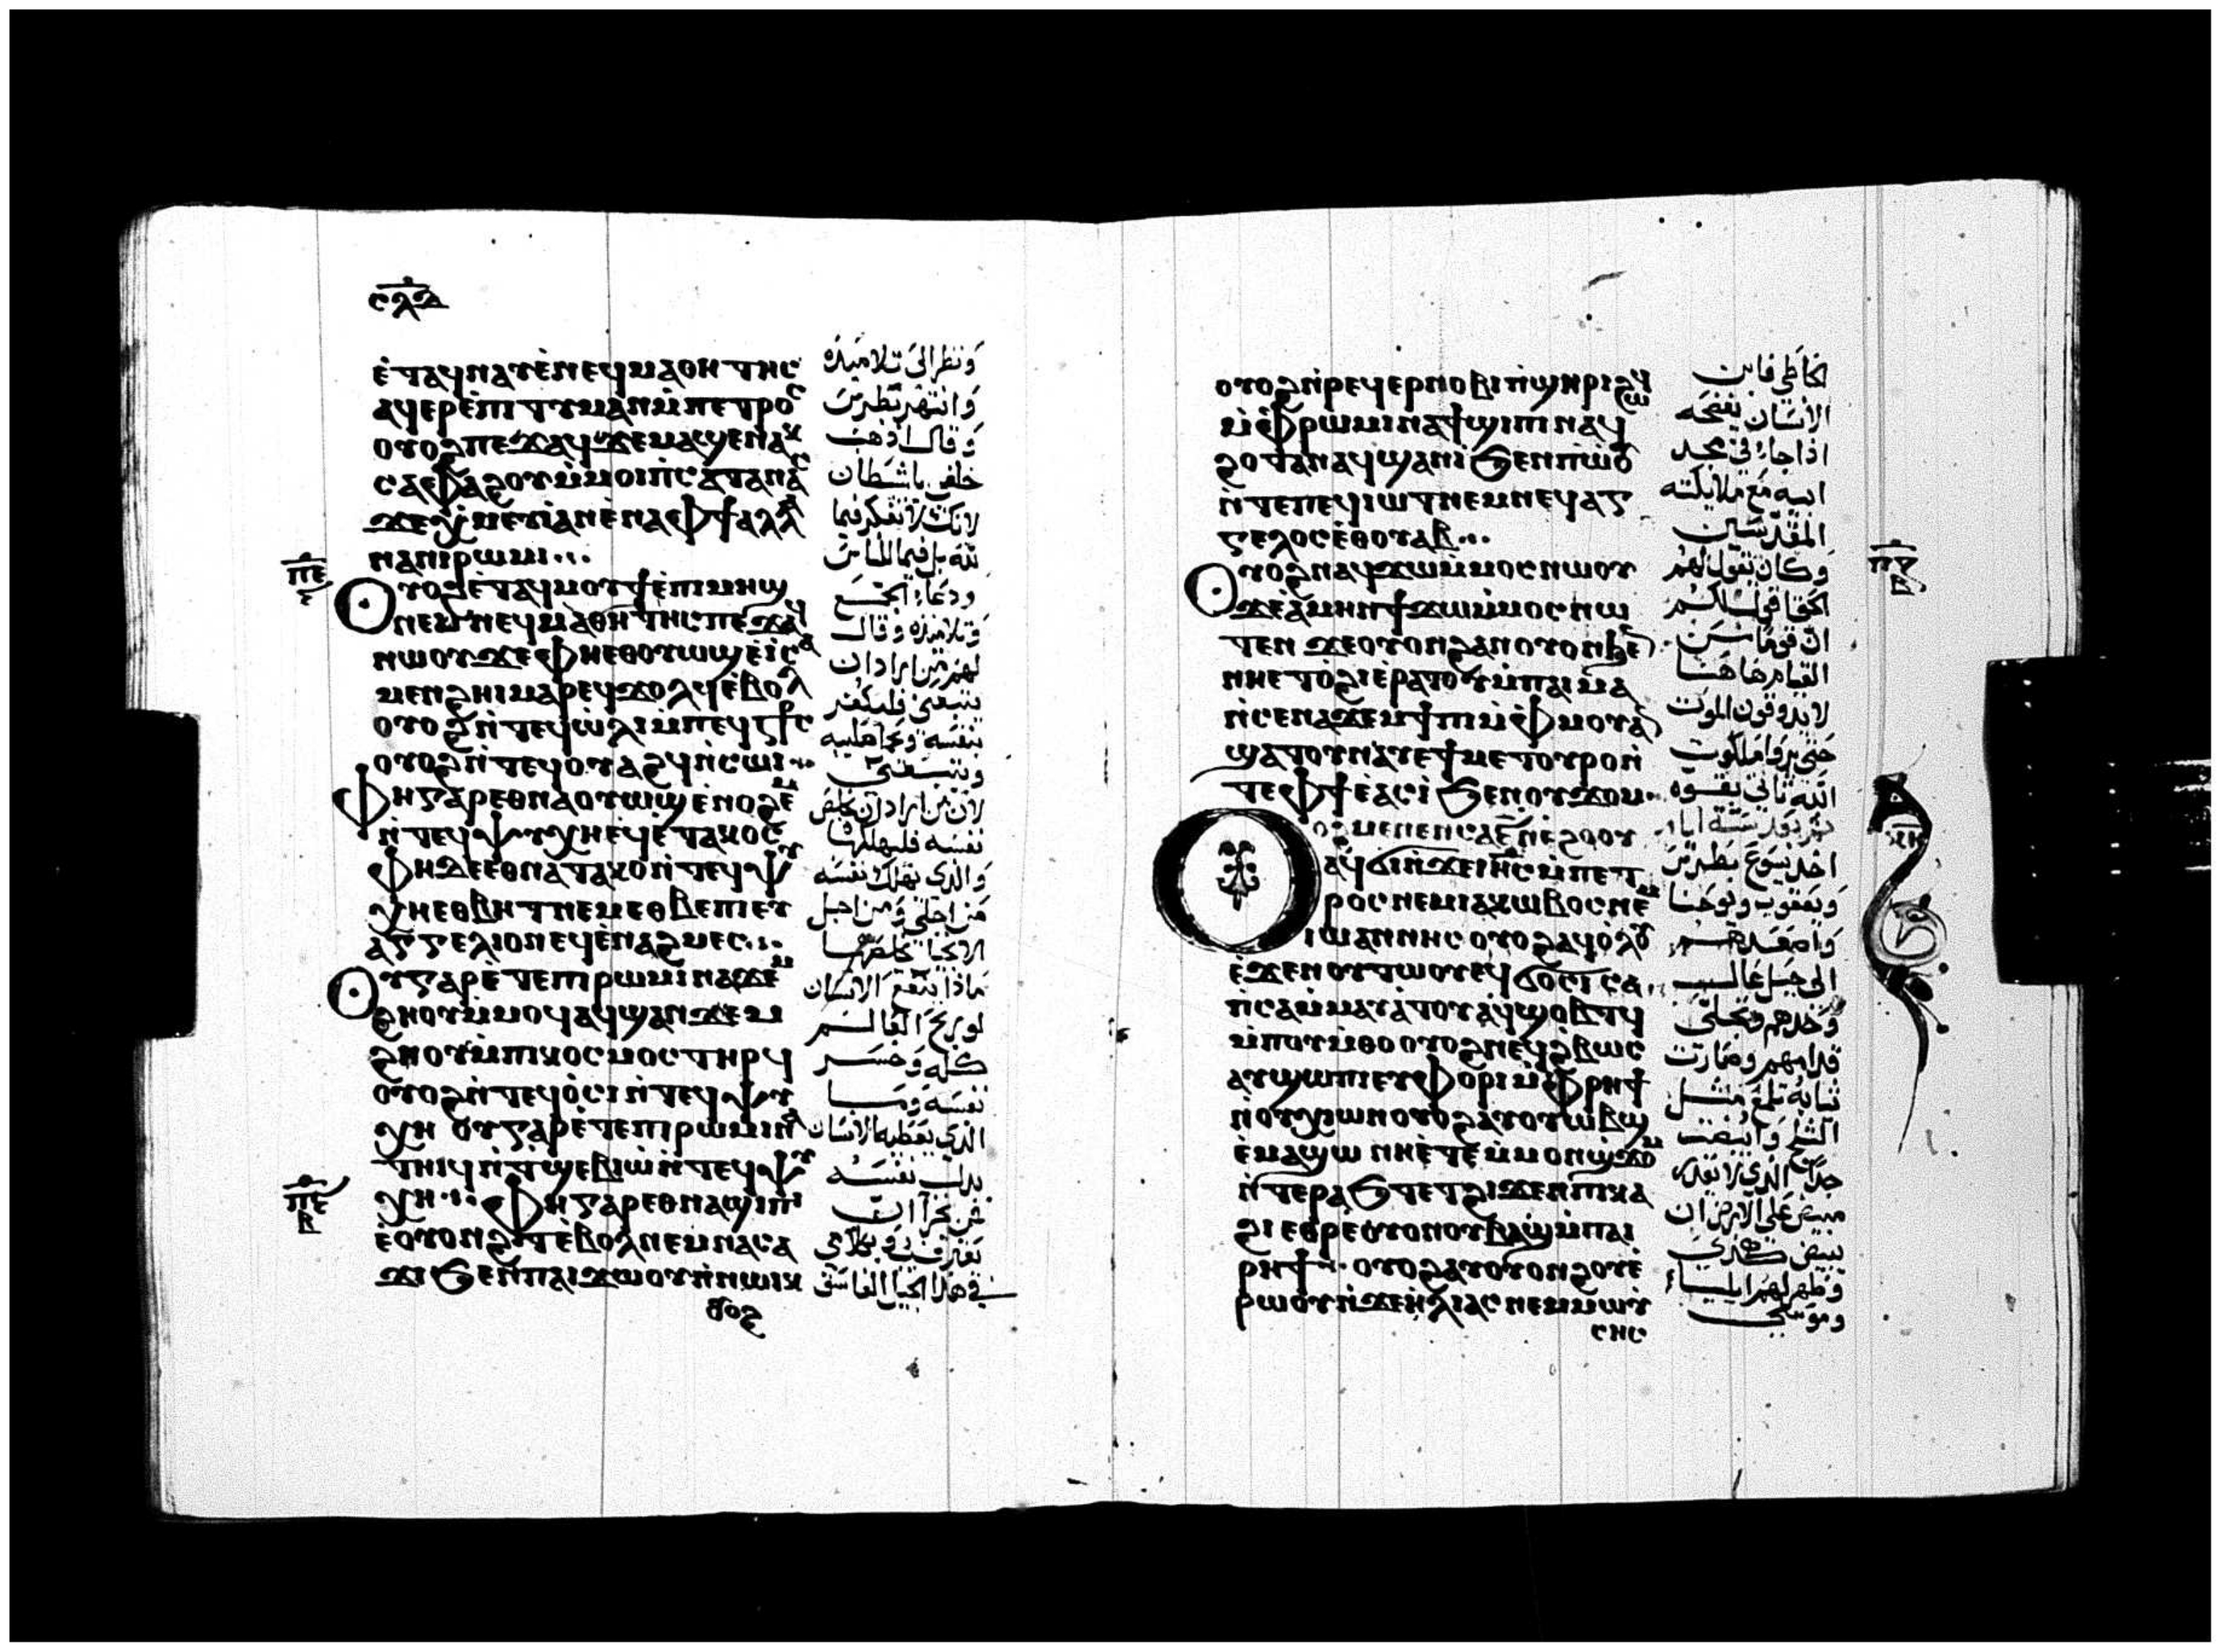 ⲥⲗⲇ
ⲉ̀ⲧⲁϥⲛⲁⲩⲉ̀ⲛⲉϥⲙⲁⲑⲏⲧⲏⲥ
ⲁϥⲉⲣⲉ̀ⲡⲓⲧⲓⲙⲁⲛⲙ̀ⲡⲉⲧⲣⲟⲥ
ⲟⲩⲟϩⲡⲉϫⲁϥϫⲉⲙⲁϣⲉⲛⲁⲕ
ⲥⲁⲫⲁϩⲟⲩⲙ̀ⲙⲟⲓⲡ̀ⲥⲁⲧⲁⲛⲁⲥ
ϫⲉⲭ̀ⲙⲉⲩⲓⲁⲛⲉ̀ⲛⲁⲫϯⲁⲗⲗⲁ
ⲛⲁⲛⲓⲣⲱⲙⲓ...
ⲡⲉ
ⲟⲩⲟϩⲉ̀ⲧⲁϥⲙⲟⲩϯⲉ̀ⲡⲓⲙⲏϣ
ⲛⲉⲙⲛⲉϥⲙⲁⲑⲏⲧⲏⲥⲡⲉϫⲁϥ
ⲛⲱⲟⲩϫⲉⲫⲏⲉⲑⲟⲩⲱϣⲉ̀ⲓ̀ⲥⲁ
ⲙⲉⲛϩⲏⲓⲙⲁⲣⲉϥϫⲟⲗϥⲉ̀ⲃⲟⲗ
ⲟⲩⲟϩⲛ̀ⲧⲉϥⲱ̀ⲗⲓⲙ̀ⲡⲉϥⲥϯⲥ
ⲟⲩⲟϩⲛ̀ⲧⲉϥⲟⲩⲁϩϥⲛ̀ⲥⲱⲓ...
ⲫⲏⲅⲁⲣⲉⲑⲛⲁⲟⲩⲱϣⲉ̀ⲛⲟϩⲉⲙ
ⲛ̀ⲧⲉϥⲯⲩⲭⲏⲉϥⲉ̀ⲧⲁⲕⲟⲥ
ⲫⲏⲇⲉⲉⲑⲛⲁⲧⲁⲕⲟⲛ̀ⲧⲉϥⲯⲩ
ⲭⲏⲉⲑⲃⲏⲧⲛⲉⲙⲉⲑⲃⲉⲡⲓⲉⲩ
ⲁⲅⲅⲉⲗⲓⲟⲛⲉϥⲉ̀ⲛⲁϩⲙⲉⲥ...
ⲟⲩⲅⲁⲣⲉ̀ⲧⲉⲡⲓⲣⲱⲙⲓⲛⲁϫⲉⲙ
ϩⲏⲟⲩⲙ̀ⲙⲟϥⲁϥϣⲁⲛϫⲉⲙ
ϩⲏⲟⲩⲙ̀ⲡⲓⲕⲟⲥⲙⲟⲥⲧⲏⲣϥ
ⲟⲩⲟϩⲛ̀ⲧⲉϥⲟ̀ⲥⲓⲛ̀ⲧⲉϥⲯⲩ
ⲭⲏ ⲟⲩⲅⲁⲣⲉ̀ⲧⲉⲡⲓⲣⲱⲙⲓⲛⲁ
ⲧⲏⲓϥⲛ̀ⲧ̀ϣⲉⲃⲓⲱ̀ⲛ̀ⲧⲉϥⲯⲩ
ⲡⲉ
ⲃ
ⲭⲏ... ⲫⲏⲅⲁⲣⲉⲑⲛⲁϣⲓⲡⲓ
ⲉ̀ⲟⲩⲟⲛϩⲧⲉ̀ⲃⲟⲗⲛⲉⲙⲛⲁⲥⲁ
ϫⲓϧⲉⲛⲡⲁⲓϫⲱⲟⲩⲛ̀ⲛⲱⲓⲕ
ⲟⲩⲟϩ
ونظر الى تلاميذه
وانتهر بطرس
وقال اذهب
خلفى ياشيطان
لانك لا تفكر فيما
لله بل فيما للناس
ودعا الجمع
وتلاميذه وقال
لهم من اراد ان
يتبعني فليكفر
بنفسه ويحمل صليبه
ويتبعني
لان من اراد ان يخلص
نفسه فليهلكها
والذي يهلك نفسه
من اجلي ومن اجل
الانجيل يخلصها
ماذا ينفع الانسان
لو ربح العالم
كله وخسر
نفسه وما
الذي يعطيه الانسان
بدل نفسه
فمن خزا ان
يعترف بي وبكلامي
في هذا الجيل الفاسق
ⲟⲩⲟϩⲛ̀ⲣⲉϥⲉⲣⲛⲟⲃⲓⲡ̀ϣⲏⲣⲓϩⲱϥ
ⲙ̀ⲫⲣⲱⲙⲓⲛⲁϯϣⲓⲡⲓⲛⲁϥ
ϩⲟⲧⲁⲛⲁϥϣⲁⲛⲓ̀ϧⲉⲛⲡ̀ⲱⲟⲩ
ⲛ̀ⲧⲉⲡⲉϥⲓⲱⲧⲛⲉⲙⲛⲉϥⲁⲅ
ⲅⲉⲗⲟⲥⲉ̀ⲑⲟⲩⲁⲃ...
ⲟⲩⲟϩⲛⲁϥϫⲱⲙ̀ⲙⲟⲥⲛⲱⲟⲩ
ϫⲉⲁ̀ⲙⲏⲛϯϫⲱⲙ̀ⲙⲟⲥⲛⲱ
ⲧⲉⲛ ϫⲉⲟⲩⲟⲛϩⲁⲛⲟⲩⲟⲛϧⲉⲛ
ⲛⲏⲉⲧⲟ̀ϩⲓⲉ̀ⲣⲁⲧⲟⲩⲙ̀ⲡⲁⲓⲙⲁ
ⲛ̀ⲥⲉⲛⲁϫⲉⲙϯⲡⲓⲙ̀ⲫⲙⲟⲩⲁⲛ
ϣⲁⲧⲟⲩⲛⲁⲩⲉϯⲙⲉⲧⲟⲩⲣⲟⲛ̀
ⲧⲉⲫϯⲉ̀ⲁⲥⲓ̀ϧⲉⲛⲟⲩϫⲟⲙ..
ⲟⲩⲟϩⲙⲉⲛⲉⲛⲥⲁⲋ̅ⲛ̀ⲉϩⲟⲟⲩ
ⲁϥϭⲓⲛ̀ϫⲉⲓⲏⲥⲙ̀ⲡⲉⲧ
ⲣⲟⲥⲛⲉⲙⲓⲁⲕⲱⲃⲟⲥⲛⲉⲙ
ⲓⲱⲁⲛⲛⲏⲥⲟⲩⲟϩⲁϥⲟ̀ⲗⲟⲩ
ⲉ̀ϫⲉⲛⲟⲩⲧⲱⲟⲩⲉϥϭⲟⲥⲓⲥⲁ
ⲡ̀ⲥⲁⲙ̀ⲙⲁⲩⲁ̀ⲧⲟⲩⲁϥϣⲟⲃⲧϥ
ⲙ̀ⲡⲟⲩⲙ̀ⲑⲟⲟⲩⲟϩⲛⲉϥϩ̀ⲃⲱⲥ
ⲁⲩϣⲱⲡⲓⲉⲩⲫⲟⲣⲓⲙ̀ⲫⲣⲏϯ
ⲛ̀ⲟⲩⲭⲓⲱⲛⲟⲩⲟϩⲁⲩⲟⲩⲱⲃϣ
ⲉ̀ⲙⲁϣⲱ ⲛⲏⲉ̀ⲧⲉⲙ̀ⲙⲟⲛϣ̀ϫⲟⲙ
ⲛ̀ⲧⲉⲣⲁϧⲧⲉⲧϩⲓϫⲉⲛⲡⲓⲕⲁ
ϩⲓⲉⲑⲣⲉⲟⲩⲟⲛⲟⲩⲃⲁϣⲙ̀ⲡⲁⲓ
ⲣⲏϯ.. ⲟⲩⲟϩⲁⲩⲟⲩⲟⲛϩⲟⲩⲉ̀
ⲣⲱⲟⲩⲛ̀ϫⲉⲏ̀ⲗⲓⲁⲥⲛⲉⲙⲙⲱⲩ
ⲥⲏⲥ
الخاطي فابن
الانسان يفضحه
اذا جاء في مجد
ابيه مع ملايكته
المقدسين
وكان يقول لهم
الحق اقول لكم
ان قوما من
القيام هاهنا
لا يذوقون الموت
حتى يروا ملكوت
الله تاتي بقوه
ثم بعد ستة ايام
اخذ يسوع بطرس
ويعقوب ويوحنا
واصعدهم
الى جبل عال
وحدهم وتجلى
قدامهم وصارت
ثيابه تلمع مثل
الثلج وابيضت
جدا الذي لا يقدر
مبيض على الارض ان
يبيض كهذي
وظهر لهم ايليا
وموسى